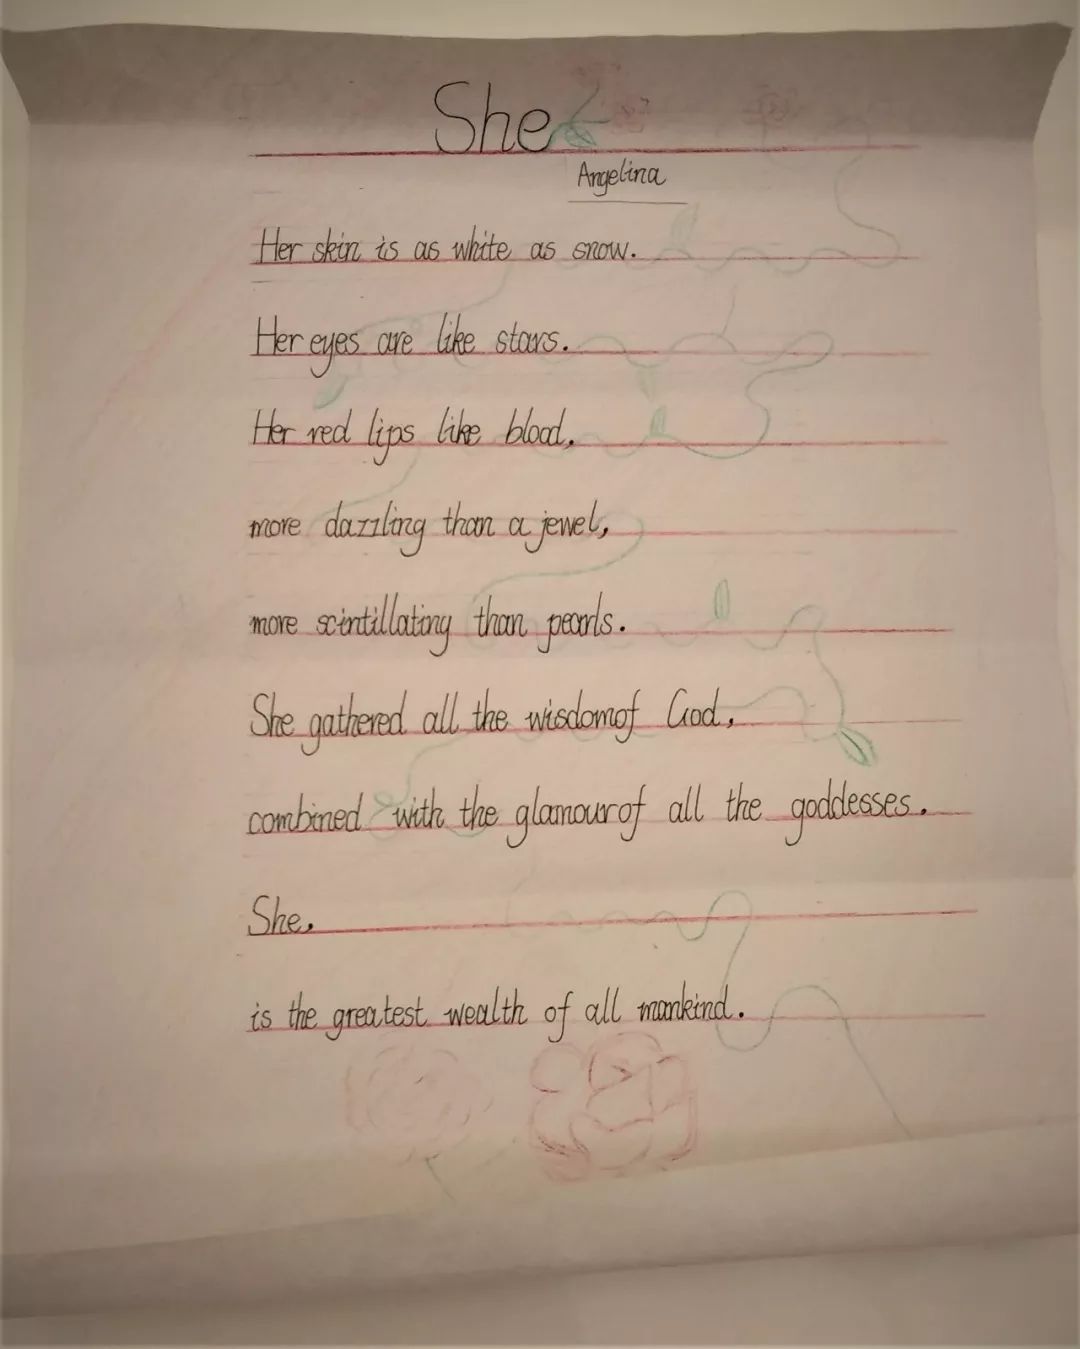 She
Angelina
Her skin is as white as snow.
Her eyes are like stars.
Her red lips like blood,
more dazzling than a jewel,
more scintillating than pearls.
She gathered all the wisdomof God,
combined with the glamourof all the goddesses.
She,
is the greatest wealth of all mankind.